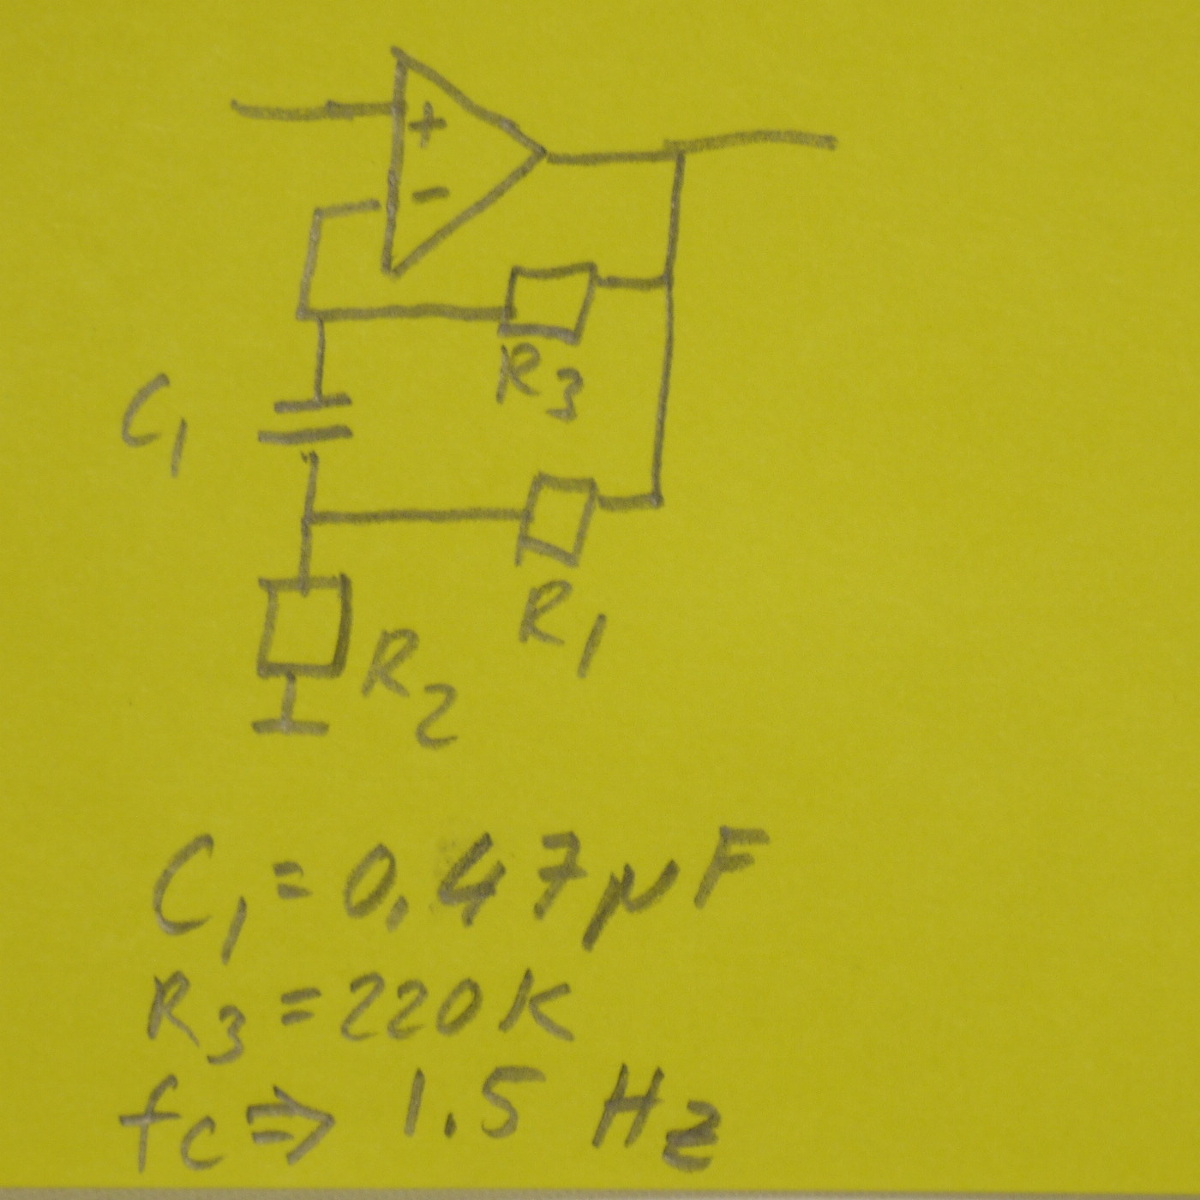 +
-
R3
C1
R1
R2
C1=0.47µF
R3=220K
fc⇒ 1.5 Hz